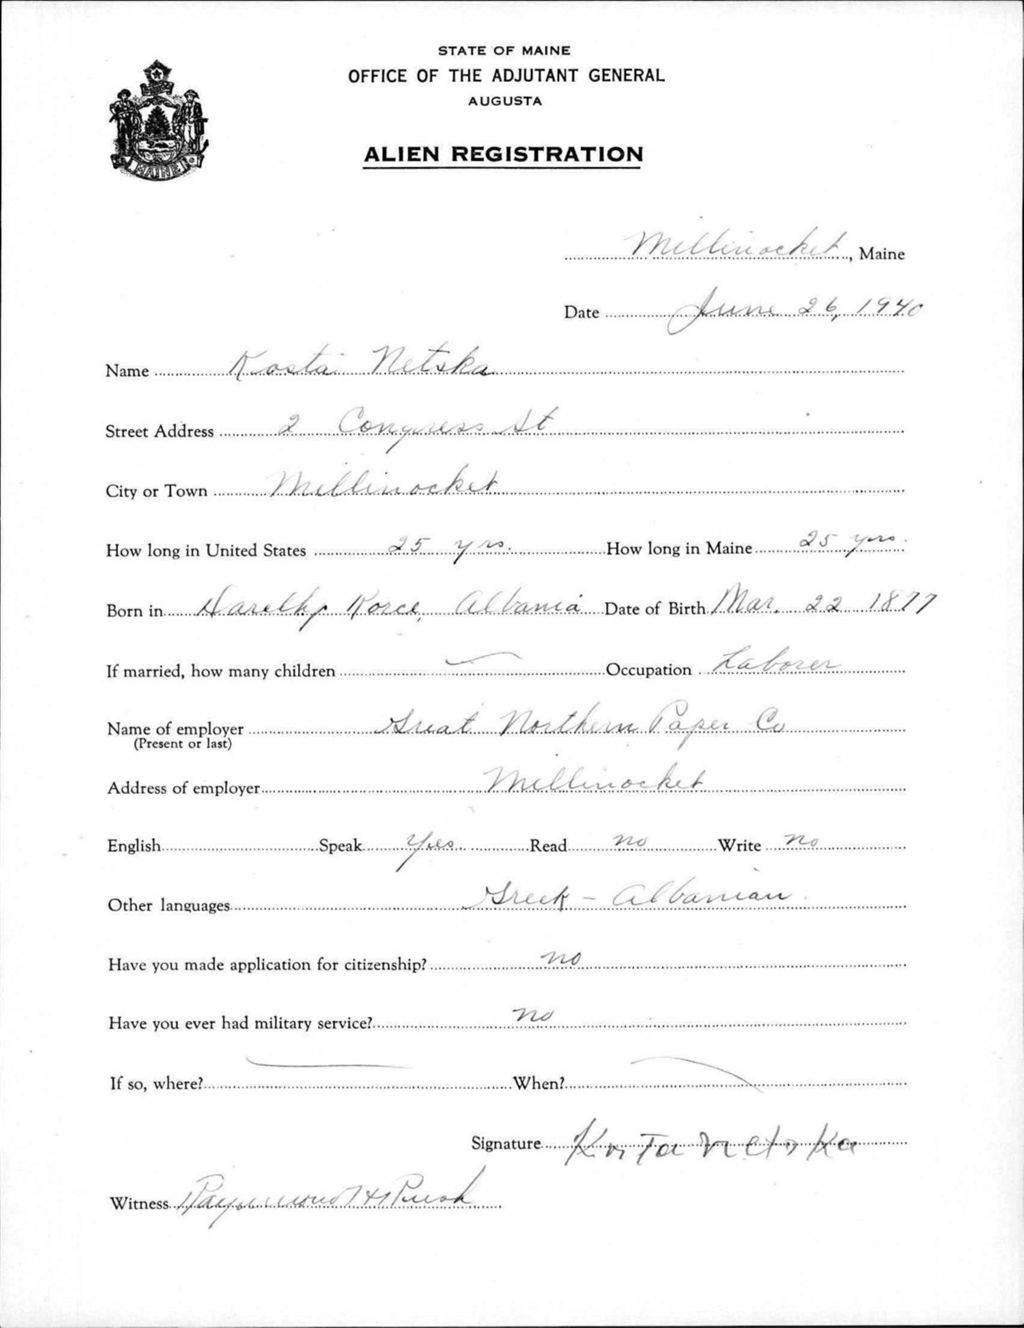 STATE OF MAINE
OFFICE OF THE ADJUTANT GENERAL
AUGUSTA
ALIEN REGISTRATION
MAINE
Millinocket, Maine
Date June 26, 1940
Name Kosta Netska
Street Address 2 Congress St
City or Town Millinocket
How long in United States 25 yrs. How long in Maine 25 yrs.
Born in Korce, Albania Date of Birth Mar. 22 1877
If married, how many children — Occupation Laborer
Name of employer Great Northern Paper Co
(Present or last)
Address of employer Millinocket
English Speak Yes Read no Write no
Other languages Greek - Albanian
Have you made application for citizenship? no
Have you ever had military service? no
If so, where? — When? —
Signature Kosta Netska
Witness Raymond H Rush